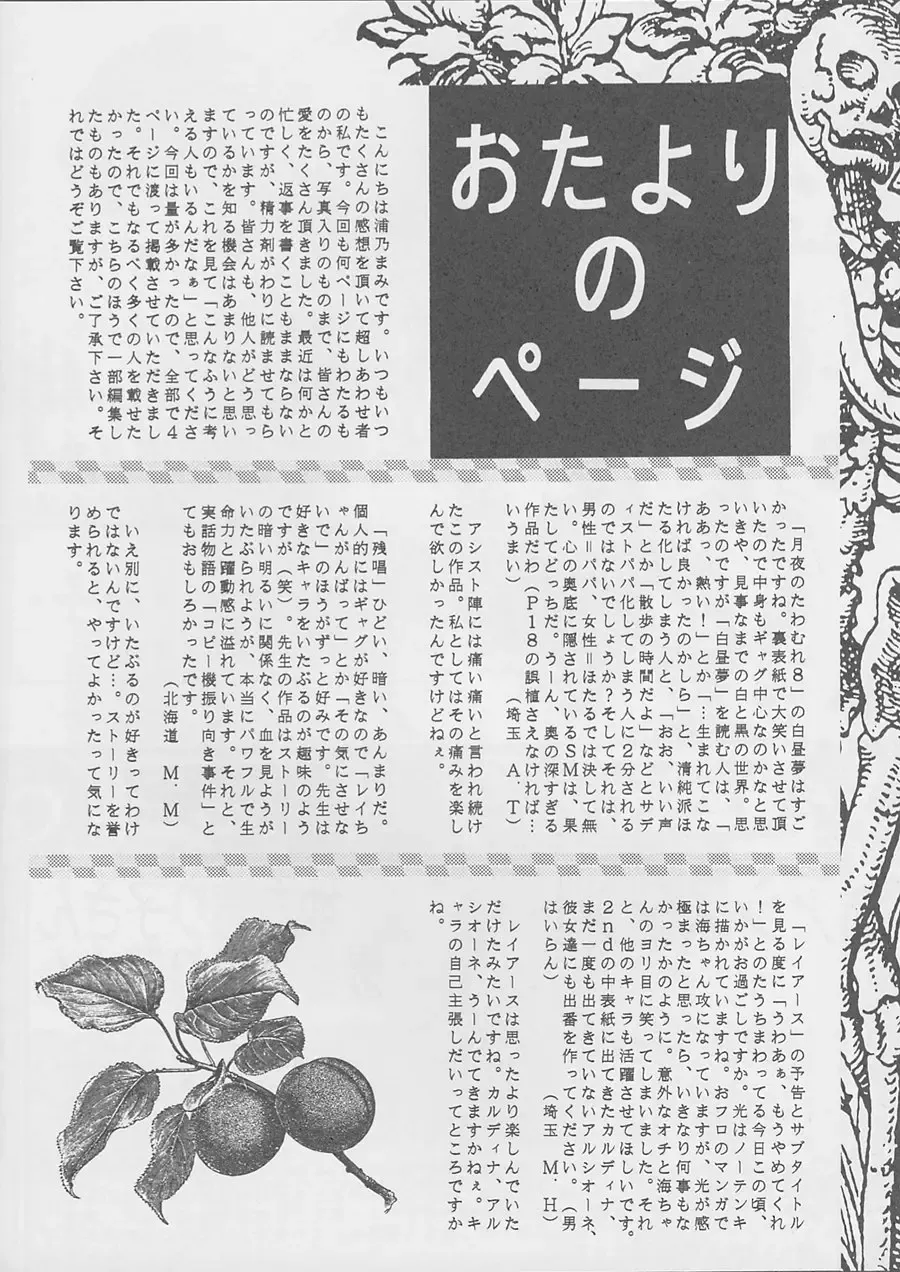 おたより
の
ページ
　こんにちは浦乃まみです。いつもいつ
もたくさんの感想を頂いて超しあわせ者
の私です。今回も何ページにもわたるも
のから、写真入りのものまで、皆さんの
愛をたくさん頂きました。最近は何かと
忙しく、返事を書くこともままならない
のですが、精力剤がわりに読ませてもら
っています。皆さんも、他人がどう思っ
ているかを知る機会はあまりないと思い
ますので、これを見て「こんなふうに考
える人もいるんだなぁ」と思ってくださ
い。今回は量が多かったので、全部で４
ページに渡って掲載させていただきまし
た。それでもなるべく多くの人を載せた
かったので、こちらのほうで一部編集し
たものもありますが、ご了承下さい。そ
れではどうぞご覧下さい。
　「月夜のたわむれ８」の白昼夢はすご
かったですね。裏表紙で大笑いさせて頂
いたので中身もギャグ中心なのかなと思
いきや、見事なまでの白と黒の世界。思
ったのですが「白昼夢」を読む人は、「
ああっ、熱い！」とか「…生まれてこな
ければ良かったのかしら」と、清純派ほ
たる化してしまう人と、「おお、いい声
だ」とか「散歩の時間だよ」などとサデ
ィストパパ化してしまう人に２分される
のではないでしょうか？そしてそれは、
男性＝パパ、女性＝ほたるでは決して無
い。心の奥底に隠されているＳＭは、果
たしてどっちだ。うーん、奥の深すぎる
作品だわ（Ｐ18の誤植さえなければ…
いうまい）
（埼玉　Ａ．Ｔ）
　アシスト陣には痛い痛いと言われ続け
たこの作品。私としてはその痛みを楽し
んで欲しかったんですけどねぇ。
　「残唱」ひどい、暗い、あんまりだ。
個人的にはギャグが好きなので「レイち
ゃんがんばって」とか「その気にさせな
いで」のほうがずっと好みです。先生は
好きなキャラをいたぶるのが趣味のよう
ですが（笑）。先生の作品はストーリー
の暗い明るいに関係なく、血を見ようが
いたぶられようが、本当にパワフルで生
命力と躍動感に溢れています。それと、
実話物語の「コピー機振り向き事件」と
てもおもしろかったです。
（北海道　Ｍ．Ｍ）
　いえ別に、いたぶるのが好きってわけ
ではないんですけど…。ストーリーを誉
められると、やってよかったって気にな
ります。
　「レイアース」の予告とサブタイトル
を見る度に「うわあぁ、もうやめてくれ
！」とのたうちまわってる今日この頃、
いかがお過ごしですか。光はノーテンキ
に描かれていますね。おフロのマンガで
は海ちゃん攻になっていますが、光が感
極まったと思ったら、いきなり何事もな
かったかのように。意外なオチと海ちゃ
んのヨリ目に笑ってしまいました。それ
と、他のキャラも活躍させてほしいです。
２ｎｄの中表紙に出てきたカルディナ、
まだ一度も出てきていないアルシオーネ、
彼女達にも出番を作ってください。（男
はいらん）
（埼玉　Ｍ．Ｈ）
　レイアースは思ったより楽しんでいた
だけたみたいですね。カルディナ、アル
シオーネ、うーんでてきますかねぇ。キ
ャラの自己主張しだいってところですか
ね。